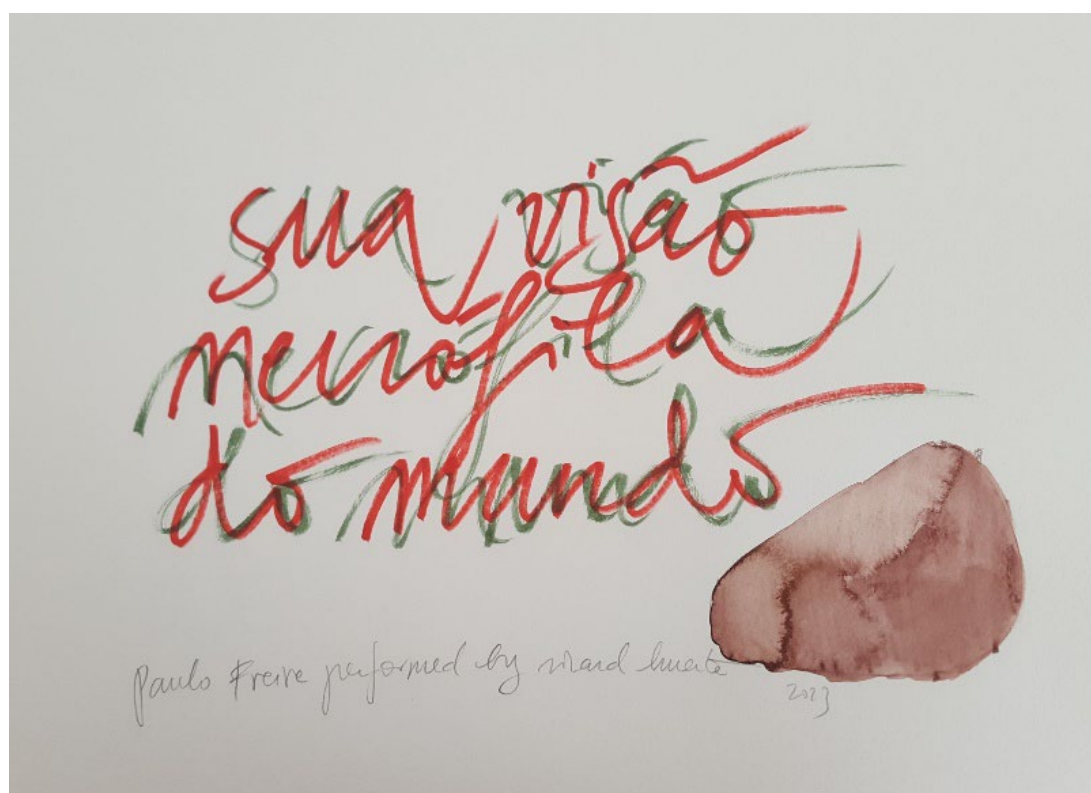 sua visão
necrófila
do mundo
Paulo Freire performed by ricard huerta
2023